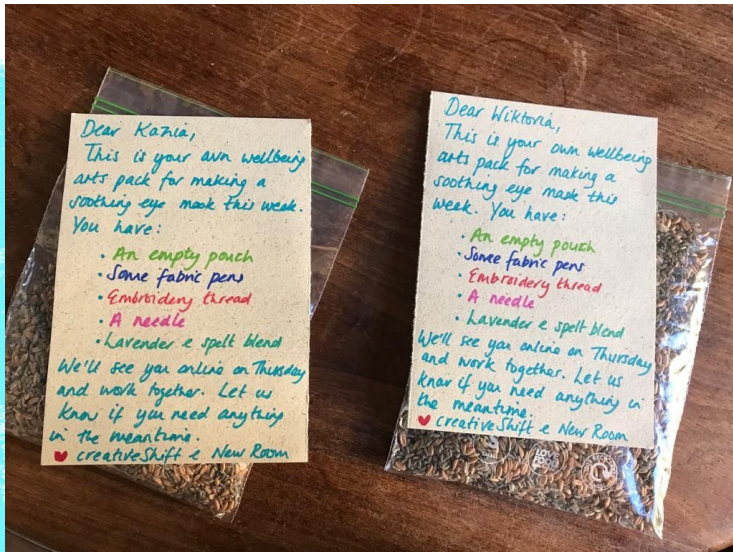 Dear Kazhia,
This is your own wellbeing
arts pack for making a
soothing eye mask this week.
You have:
• An empty pouch
• Some fabric pens
• Embroidery thread
• A needle
• Lavender & spelt blend
We'll see you online on Thursday
and work together. Let us
know if you need anything
in the meantime.
♥ creativeShift & New Room
Dear Wiktoria,
This is your own wellbeing
arts pack for making a
soothing eye mask this
week. You have:
• An empty pouch
• Some fabric pens
• Embroidery thread
• A needle
• Lavender & spelt blend
We'll see you online on Thursday
and work together. Let us
know if you need anything in
the meantime.
♥ creativeShift & New Room